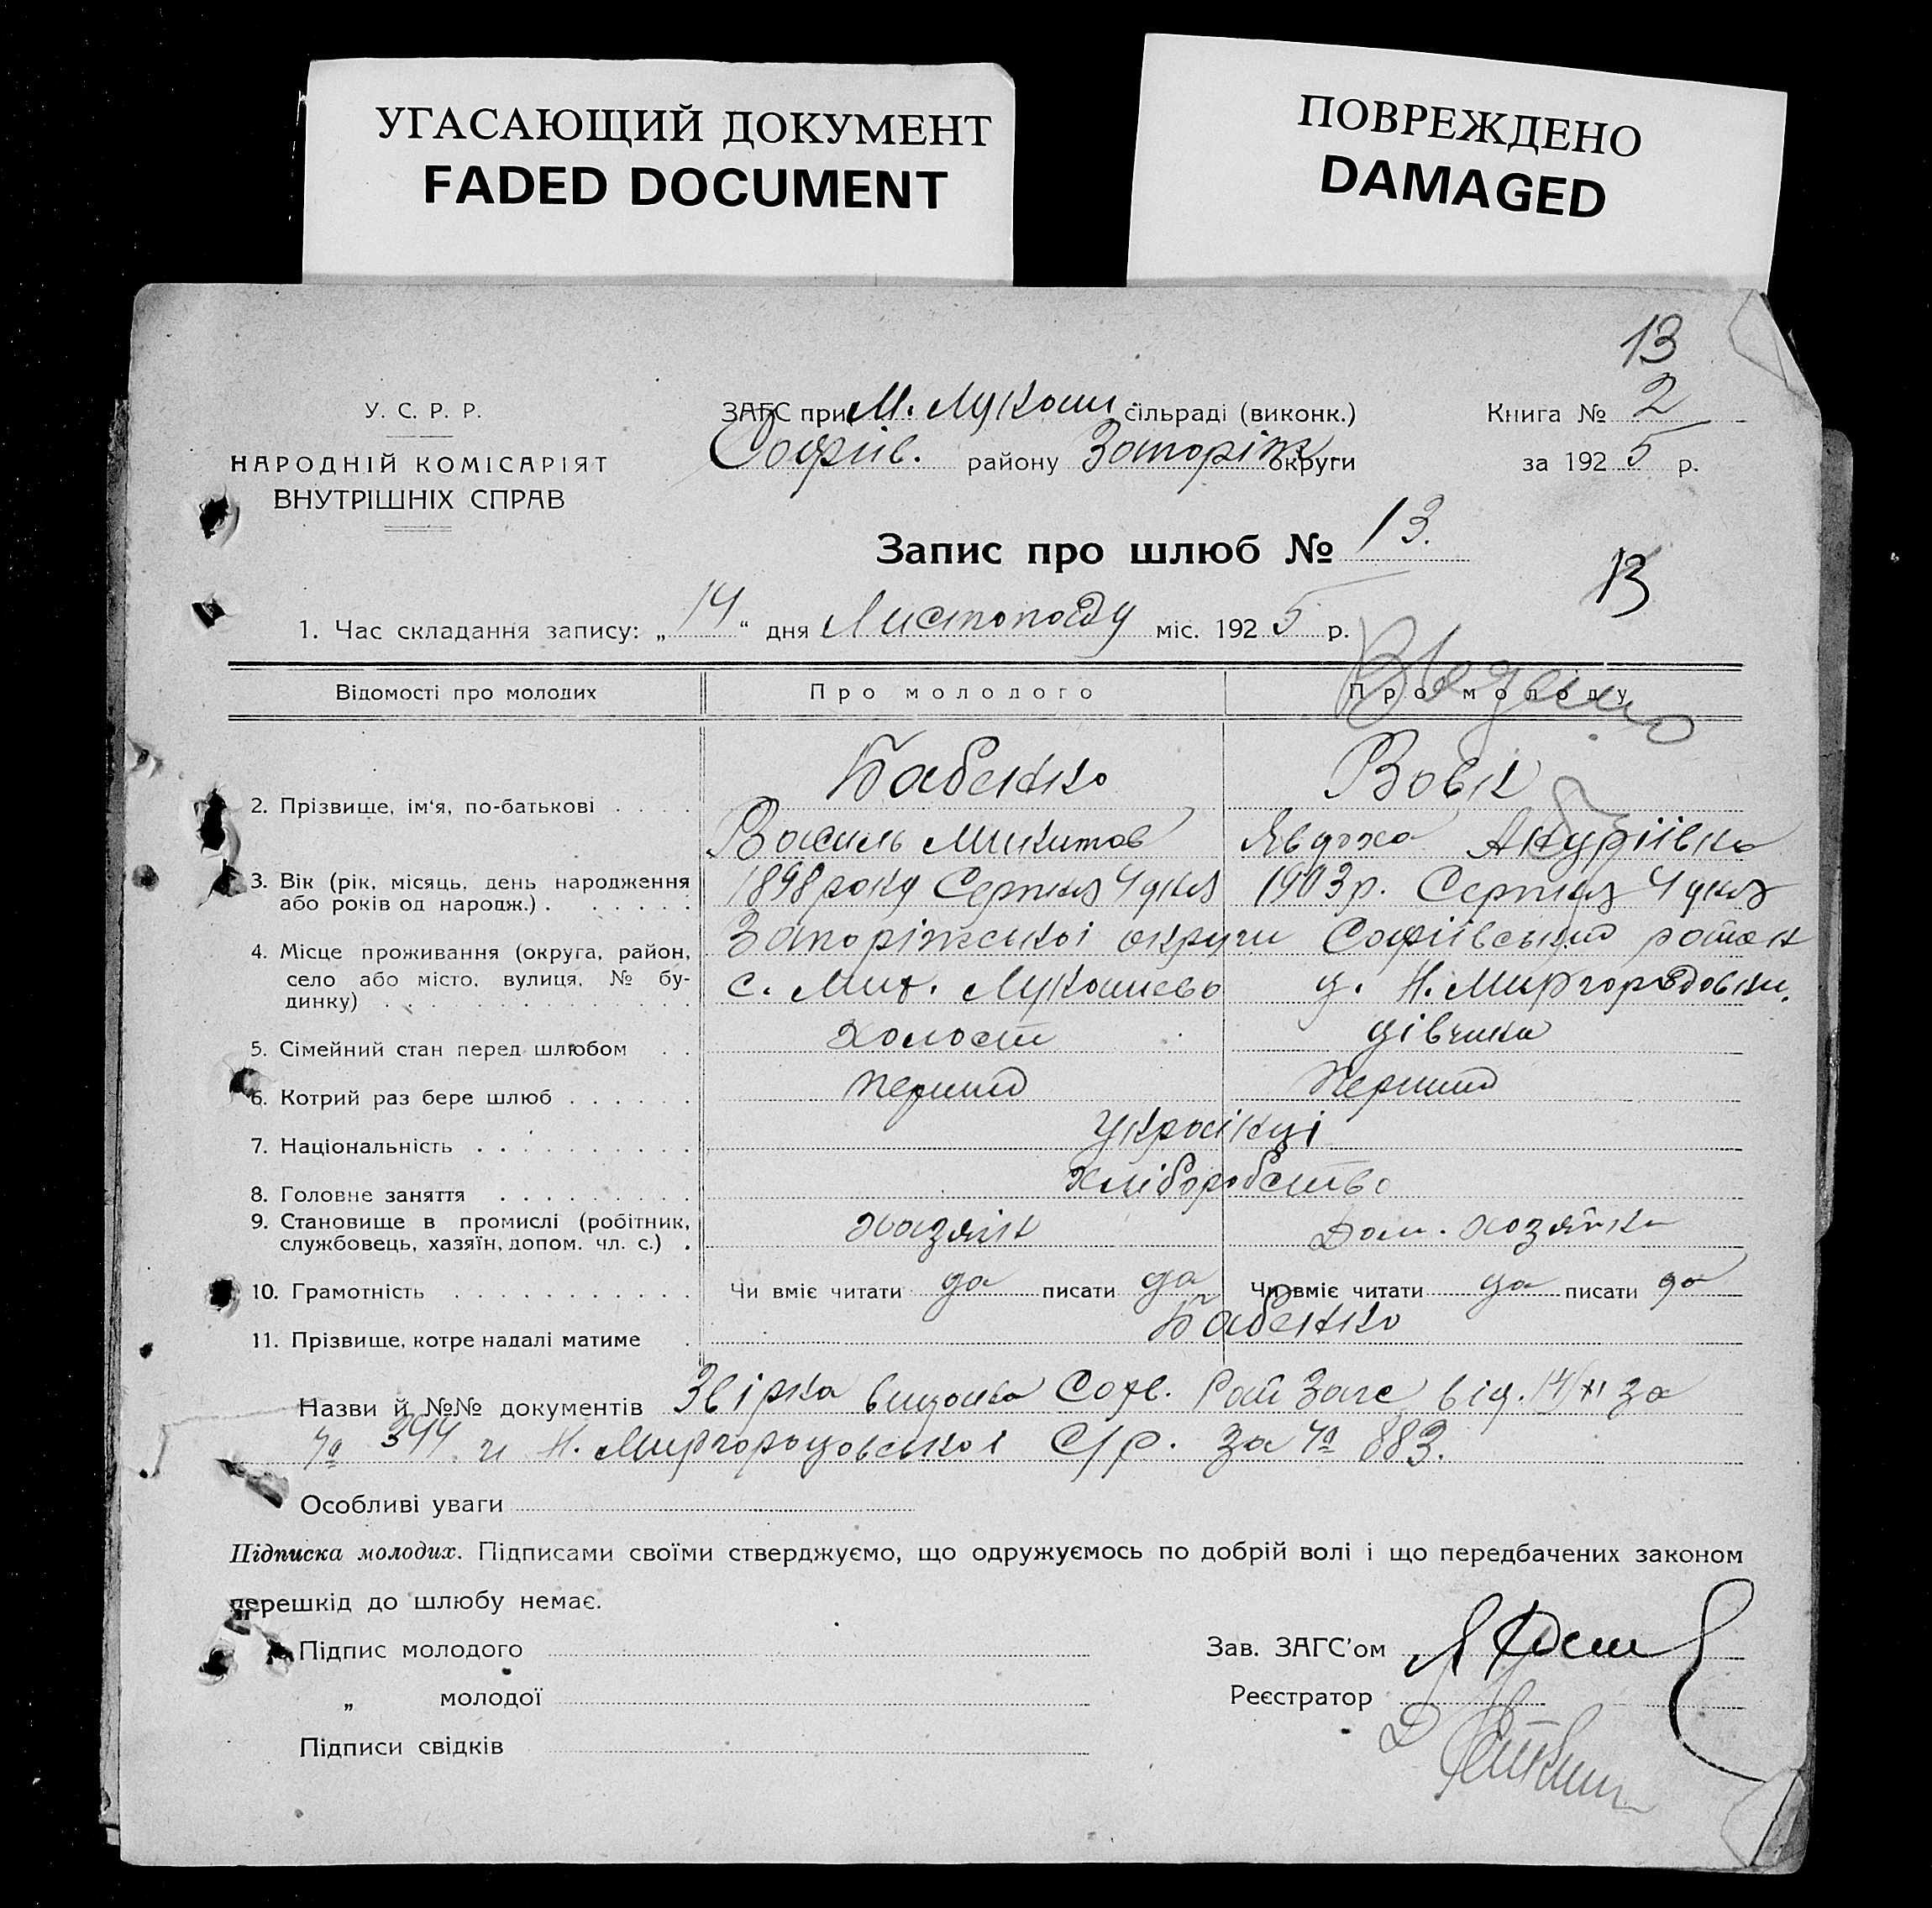 УГАСАЮЩИЙ ДОКУМЕНТ
FADED DOCUMENT
ПОВРЕЖДЕНО
DAMAGED
13
У. С. Р. Р.
НАРОДНІЙ КОМІСАРІЯТ
ВНУТРІШНІХ СПРАВ
ЗАГС при М. Лукаш сільраді (виконк.)
Софіїв. району Запоріж округи
Книга № 2
за 1925 р.
Запис про шлюб № 13.
13
1. Час складання запису: „14“ дня Листопаду міс. 1925 р.
Відомості про молодих Про молодого Про молоду
Видано
2. Прізвище, ім'я, по-батькові Бабенко Вовк
Василь Микитов Явдоха Андріївна
3. Вік (рік, місяць, день народження 1898 року Серпня 4 дня 1903 р. Серпня 4 дня
або років од народж.)
4. Місце проживання (округа, район, Запоріжської округи Софіївський район
село або місто, вулиця, № бу- с. Мих. Лукашево д. Н. Миргородовки.
динку)
5. Сімейний стан перед шлюбом холост дівчина
6. Котрий раз бере шлюб перший перший
7. Національність українці
8. Головне заняття хліборобство
9. Становище в промислі (робітник, хазяїн Дом. хозяйка
службовець, хазяїн, допом. чл. с.)
10. Грамотність Чи вміє читати да писати да Чи вміє читати да писати да
11. Прізвище, котре надалі матиме Бабенко
Назви й №№ документів Звірка видана Соф. Рай Загс від. 14/XI за
№ 394 и Н. Миргородовської С/р. за № 883.
Особливі уваги
Підписка молодих. Підписами своїми стверджуємо, що одружуємось по добрій волі і що передбачених законом
перешкід до шлюбу немає.
Підпис молодого
„ молодої
Підписи свідків
Зав. ЗАГС'ом
Реєстратор